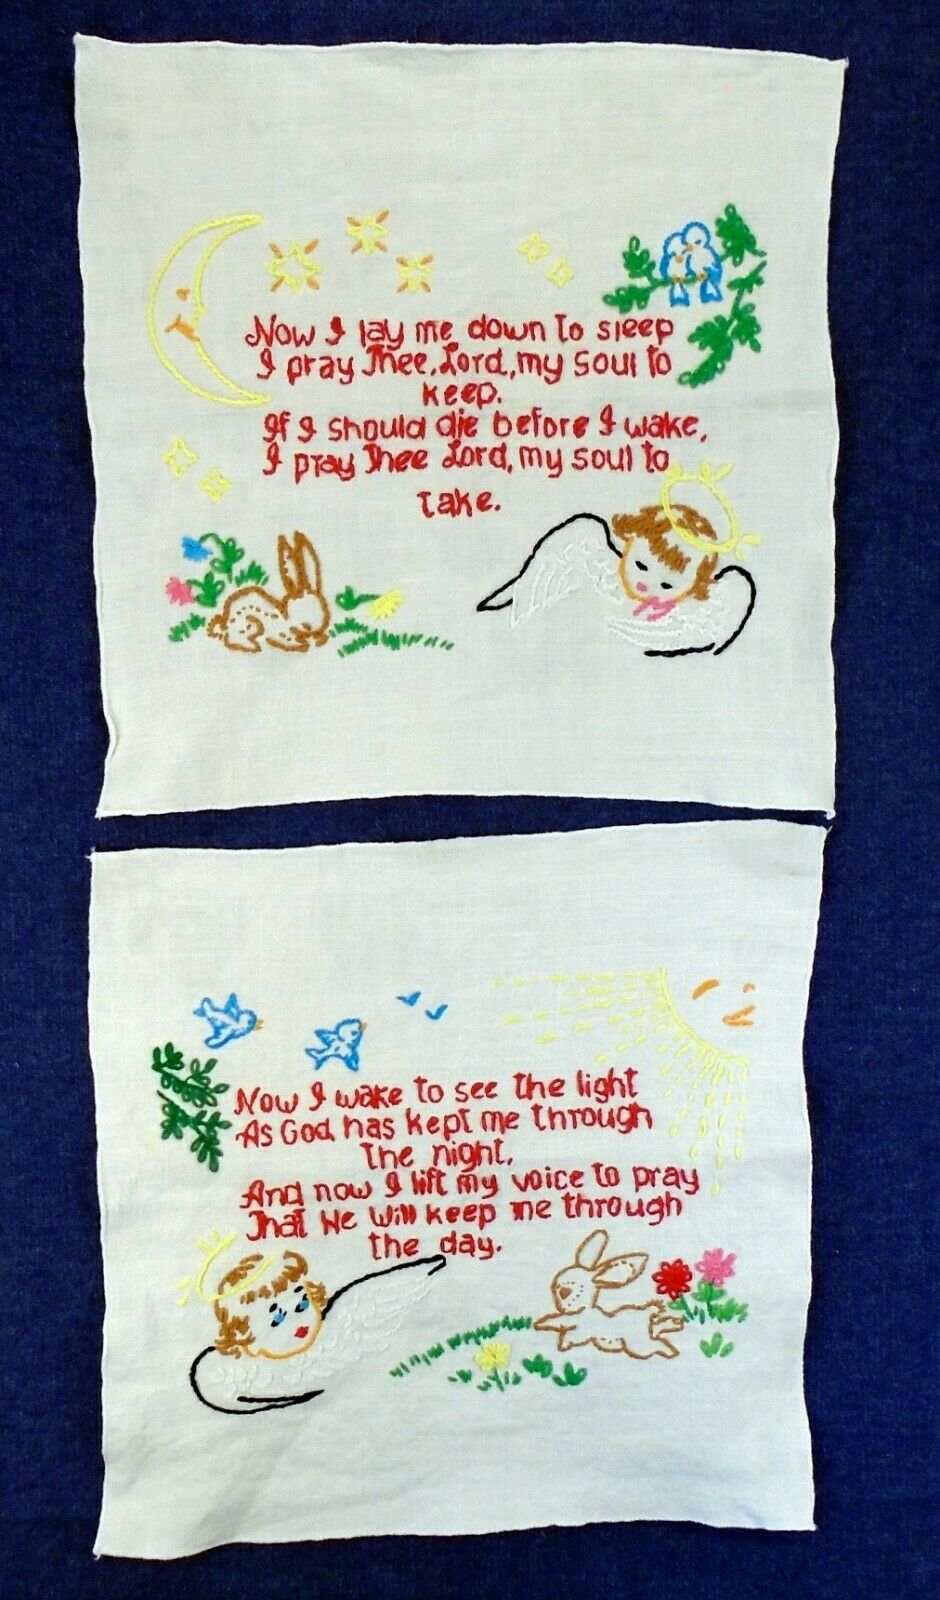 Now I lay me down to sleep
I pray Thee, Lord, my soul to
keep.
If I should die before I wake,
I pray Thee Lord, my soul to
take.
Now I wake to see the light
As God has kept me through
the night,
And now I lift my voice to pray
That He will keep me through
the day.